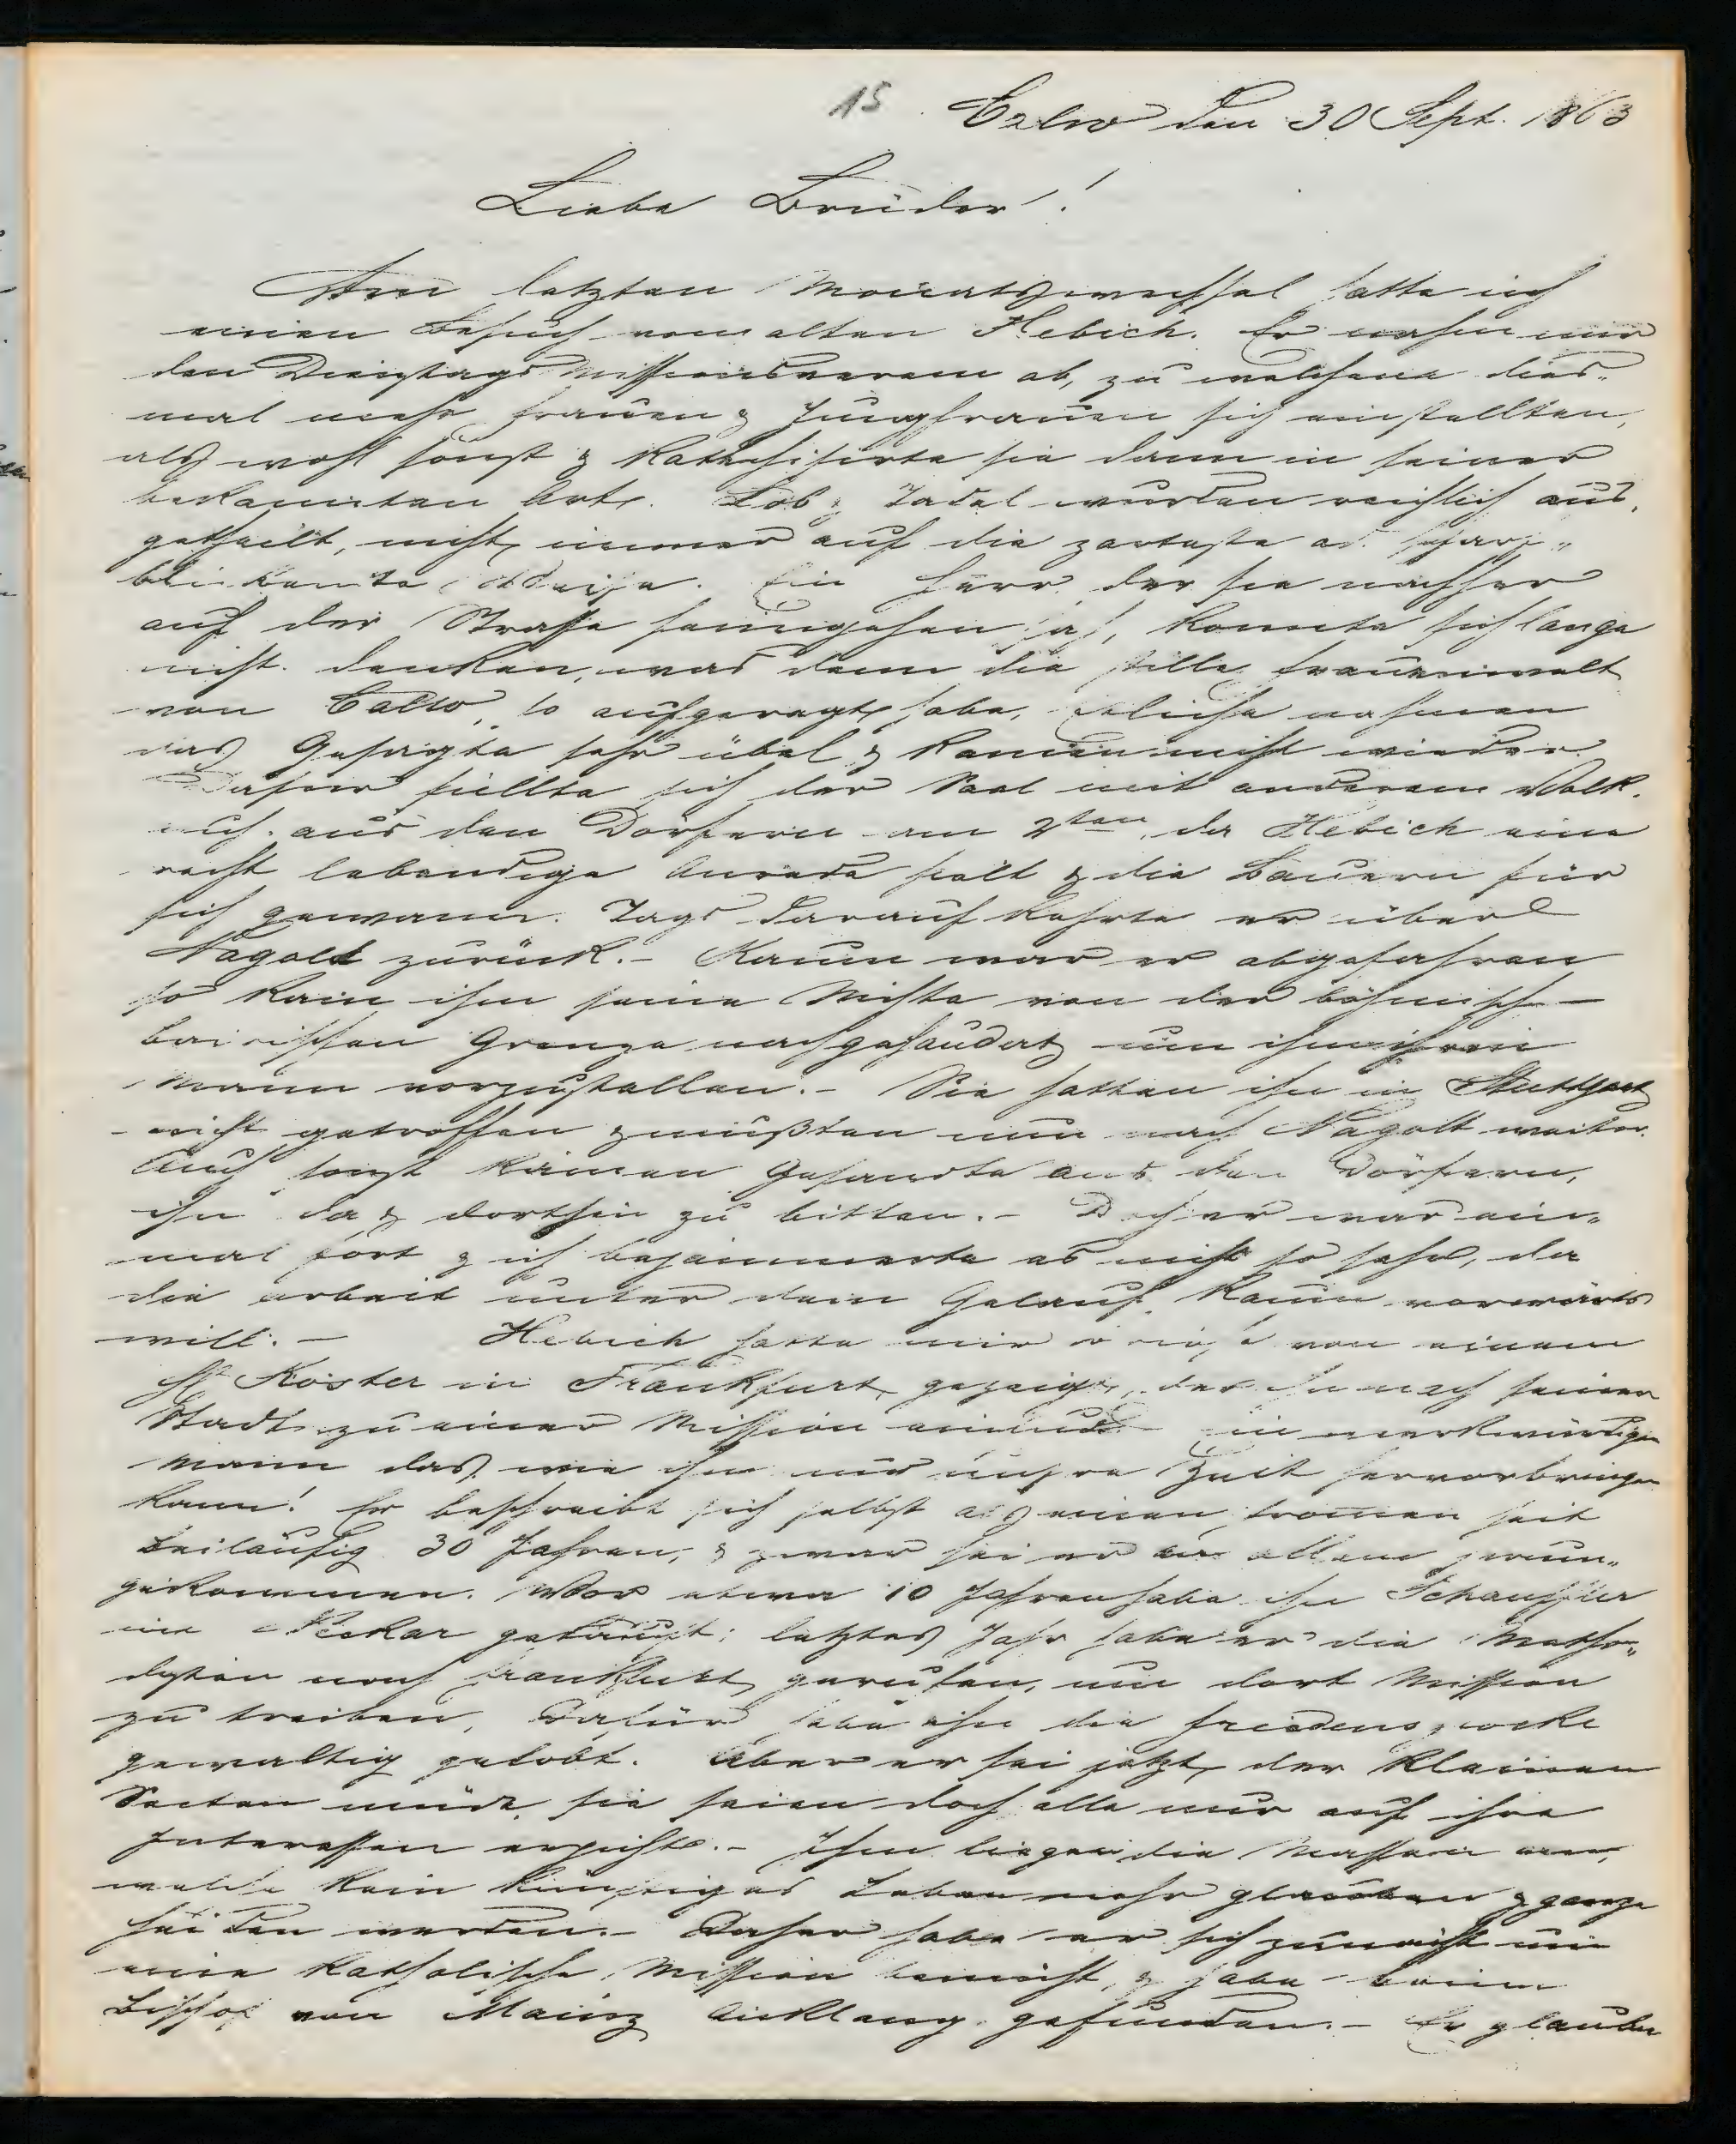 15
Calw den 30 Sept. 1863
Liebe Brüder!
Am letzten Monatswechsel hatte ich
einen Besuch vom alten Hebich. Er nahm mir
den Dienstags Missionsverein ab, zu welchem dies„
mal mehr Frauen & Jungfrauen sich einstellten,
als wohl sonst & kathechisirte sie dann in seiner
bekannten Art. Lob & Tadel wurden reichlich aus„
getheilt, nicht immer auf die zarteste od. scharf„
blickendste Weise. Ein Herr, der sie nachher
auf der Strasse heimgehen sah, konnte sich lange
nicht denken, was denn die stille Frauenwelt
von Calw so aufgeregt habe, etliche nahmen
das Gesagte sehr übel & kamen nicht wieder.
Dafür füllte sich der Saal mit anderem Volk,
auch aus den Dörfern am 2ten, da Hebich eine
recht lebendige Anrede hielt & die Bauern für
sich gewann. Tags darauf kehrte er über
Nagold zurück. – Kaum war er abgefahren
so kam ihm seine Nichte von der böhmisch –
bairischen Grenze nachgesaudert um ihm ihren
Mann vorzustellen. – Sie hatten ihn in Stuttgart
nicht getroffen & mußten nun nach Nagolt weiter.
Auch sonst kamen Gesandte aus den Dörfern,
ihn da & dorthin zu bitten. – Doch er war ein„
mal fort & ich bejammerte es nicht so sehr, da
die Arbeit unter dem Gelauf kaum vorwärts
will. – Hebich hatte mir Briefe von einem
H Köster in Frankfurt gezeigt, der ihn nach seiner
Stadt zu einer Mission einlud. Ein merkwürdiger
Mann das, wie ihn nur unsre Zeit hervorbringen
kann! Er beschreibt sich selbst als einen frommen seit
beiläufig 30 Jahren, & zwar sei er in allem herum„
gekommen. Vor etwa 10 Jahren habe ihn Schauffler
im Neckar getauft; letztes Jahr habe er die Metho„
disten nach Frankfurt gerufen, um dort Mission
zu treiben, dafür habe ihn die Friedensglocke
gewaltig gelobt. Aber er sei jetzt der kleinen
Secten müde, sie seien doch alle nur auf ihre
Interessen erpicht. – Ihm liegen die Massen an,
welche kein künftiges Leben mehr glauben & ganze
Heiden werden. – Daher habe er sich zunächst um
eine katholische Mission bemüht, & habe beim
Bischof von Mainz Anklang gefunden. – Er glaube